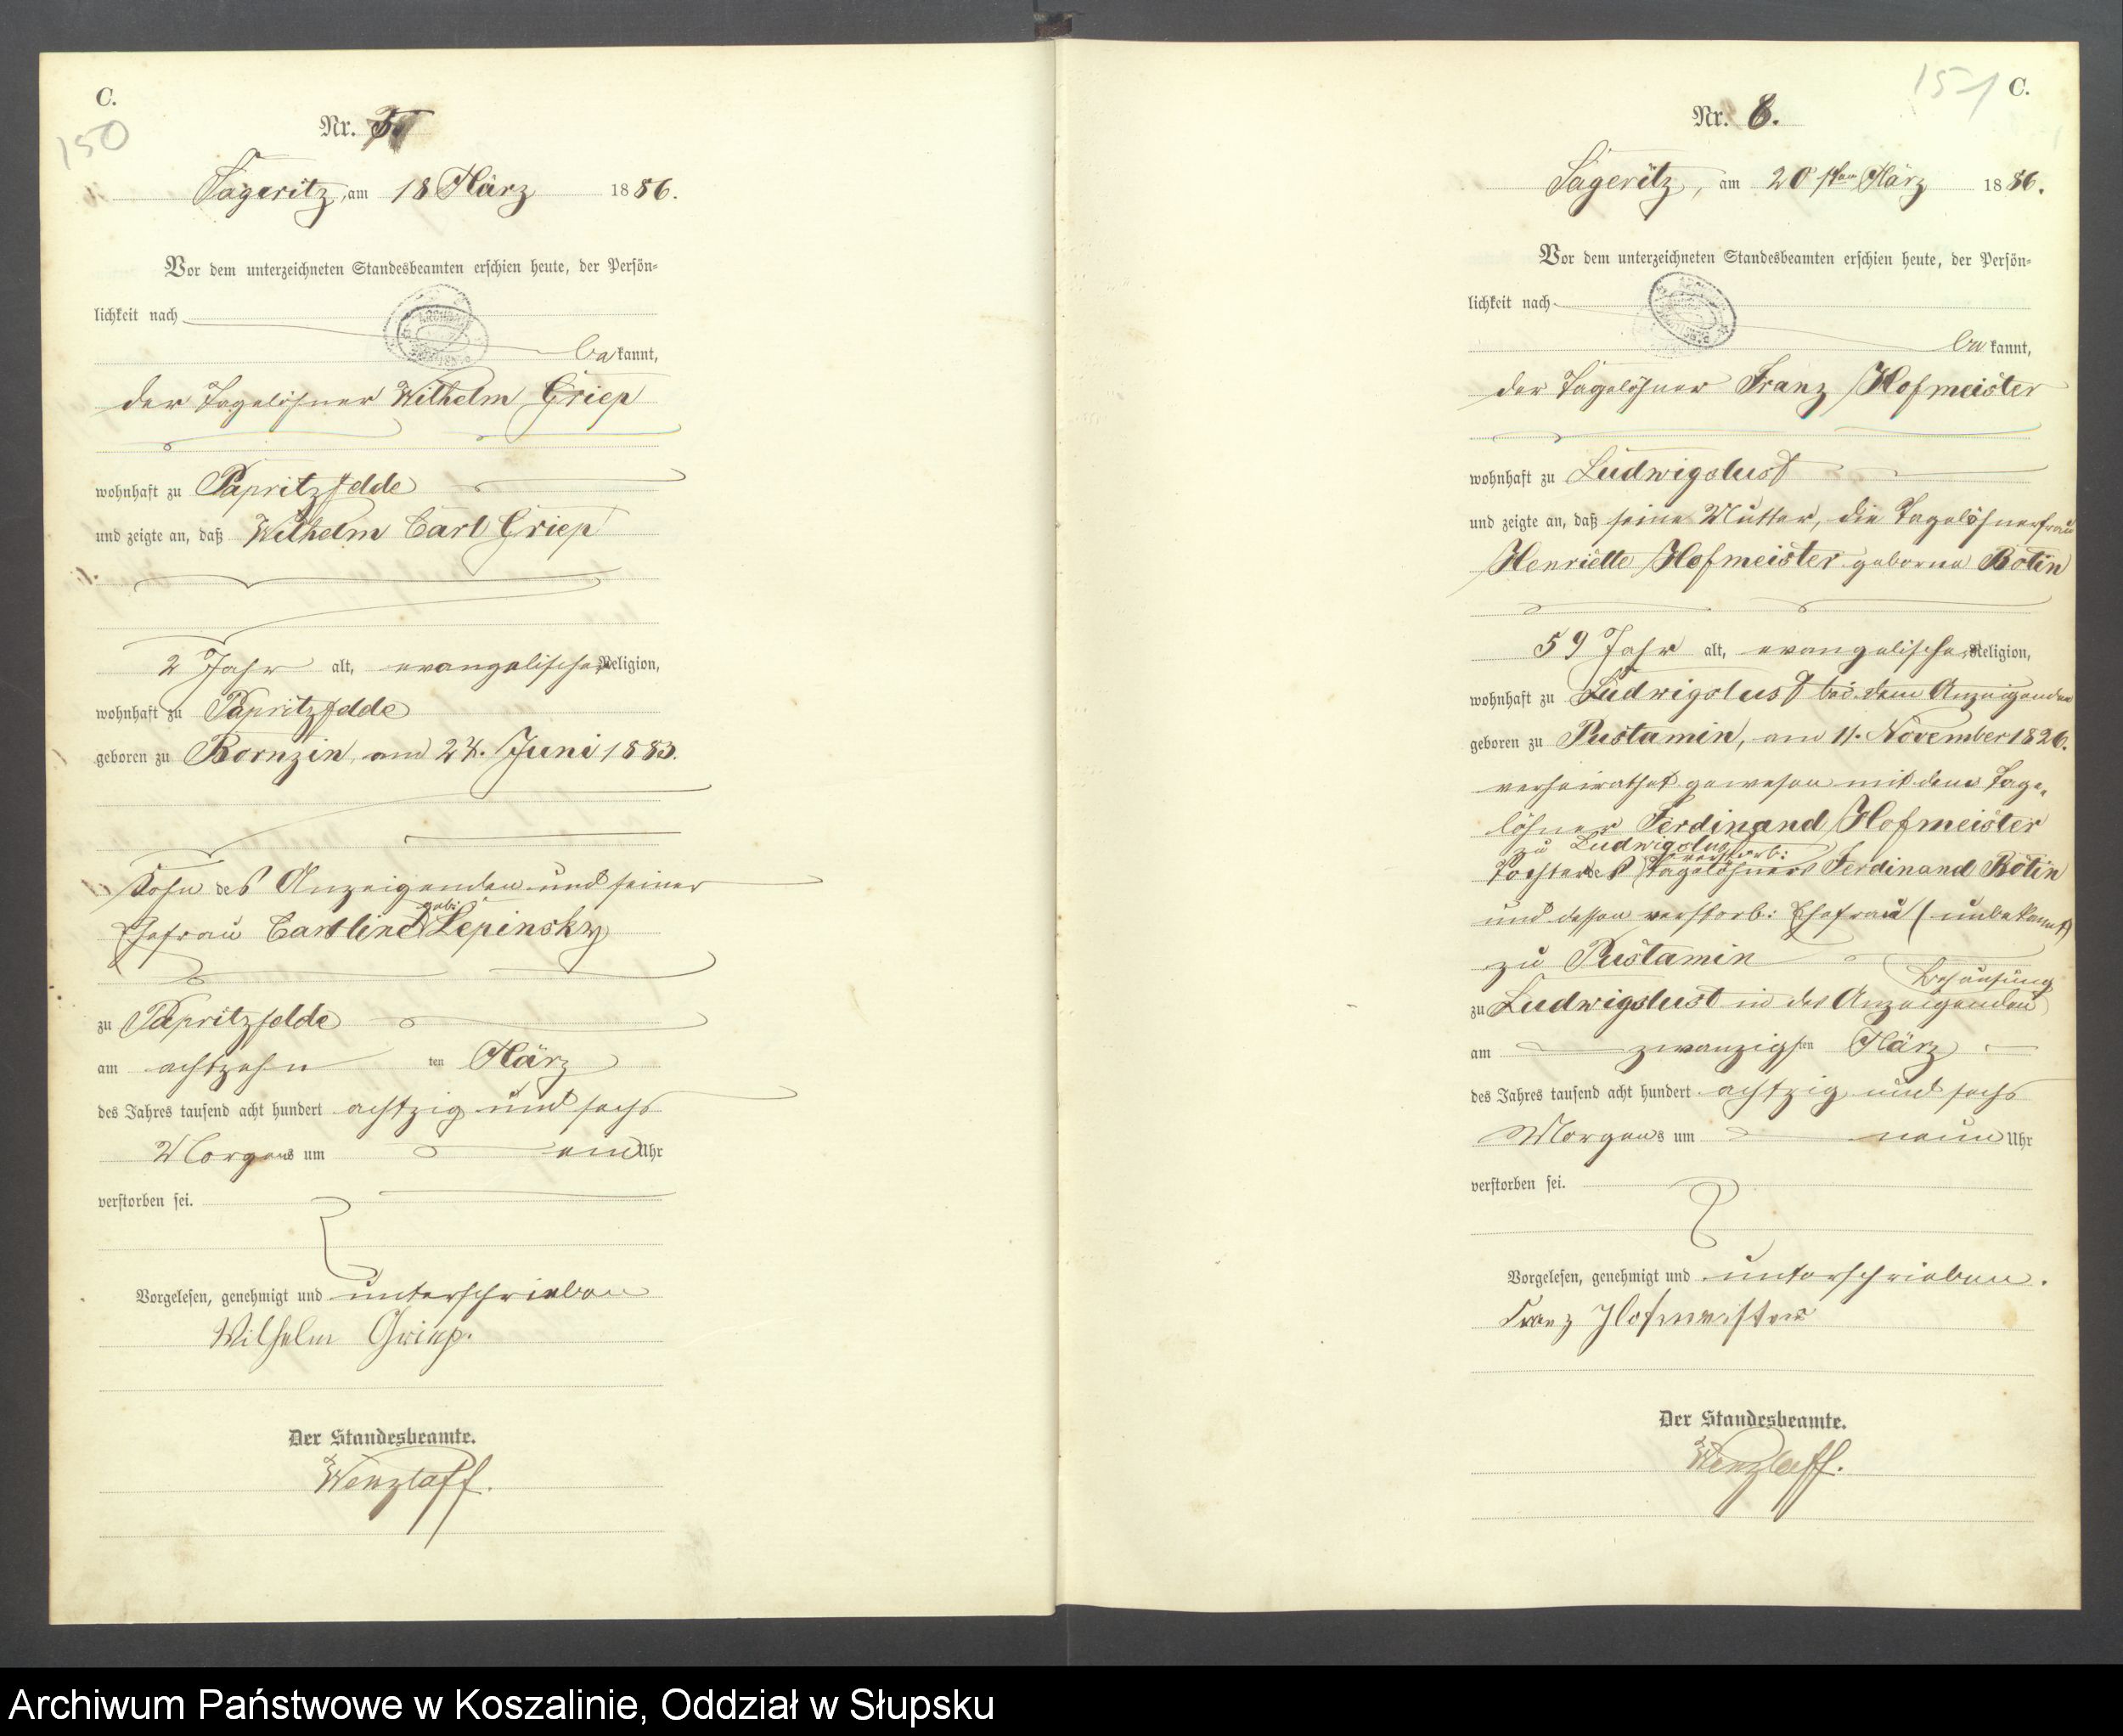 C.
150
Nr.
Sageritz, am 18 März 1886.
Vor dem unterzeichneten Standesbeamten erschien heute, der Persön-
lichkeit nach
bekannt,
der Tagelöhner Wilhelm Griep
wohnhaft zu Papritzfelde
und zeigte an, daß Wilhelm Carl Griep
2 Jahr alt, evangelischer Religion,
wohnhaft zu Papritzfelde
geboren zu Bornzin, am 24. Juni 1883.
Sohn des Anzeigenden und seiner
geb:
Ehefrau Caroline Lepinsky
zu Papritzfelde
am achtzehn ten März
des Jahres tausend acht hundert achtzig und sechs
Morgens um ein Uhr
verstorben sei.
Vorgelesen, genehmigt und unterschrieben
Wilhelm Griep.
Der Standesbeamte.
Wenzlaff.
151 C.
Nr. 6.
Sageritz, am 20 sten März 1886.
Vor dem unterzeichneten Standesbeamten erschien heute, der Persön-
lichkeit nach
bekannt,
der Tagelöhner Franz Hofmeister
wohnhaft zu Ludwigslust
und zeigte an, daß seine Mutter, die Tagelöhnerfrau
Henriette Hofmeister geborne Botin
59 Jahr alt, evangelischer Religion,
wohnhaft zu Ludwigslust bei dem Anzeigenden
geboren zu Pustamin, am 11. November 1826.
verheirathet gewesen mit dem Tage-
löhner Ferdinand Hofmeister
zu Ludwigslust
verstorb:
Tochter des Tagelöhners Ferdinand Botin
und dessen verstorb: Ehefrau (unbekannt)
zu Pustamin
Behausung
zu Ludwigslust in des Anzeigenden
am zwanzigsten März
des Jahres tausend acht hundert achtzig und sechs
Morgens um neun Uhr
verstorben sei.
Vorgelesen, genehmigt und unterschrieben.
Franz Hofmeister
Der Standesbeamte.
Wenzlaff.
Archiwum Państwowe w Koszalinie, Oddział w Słupsku